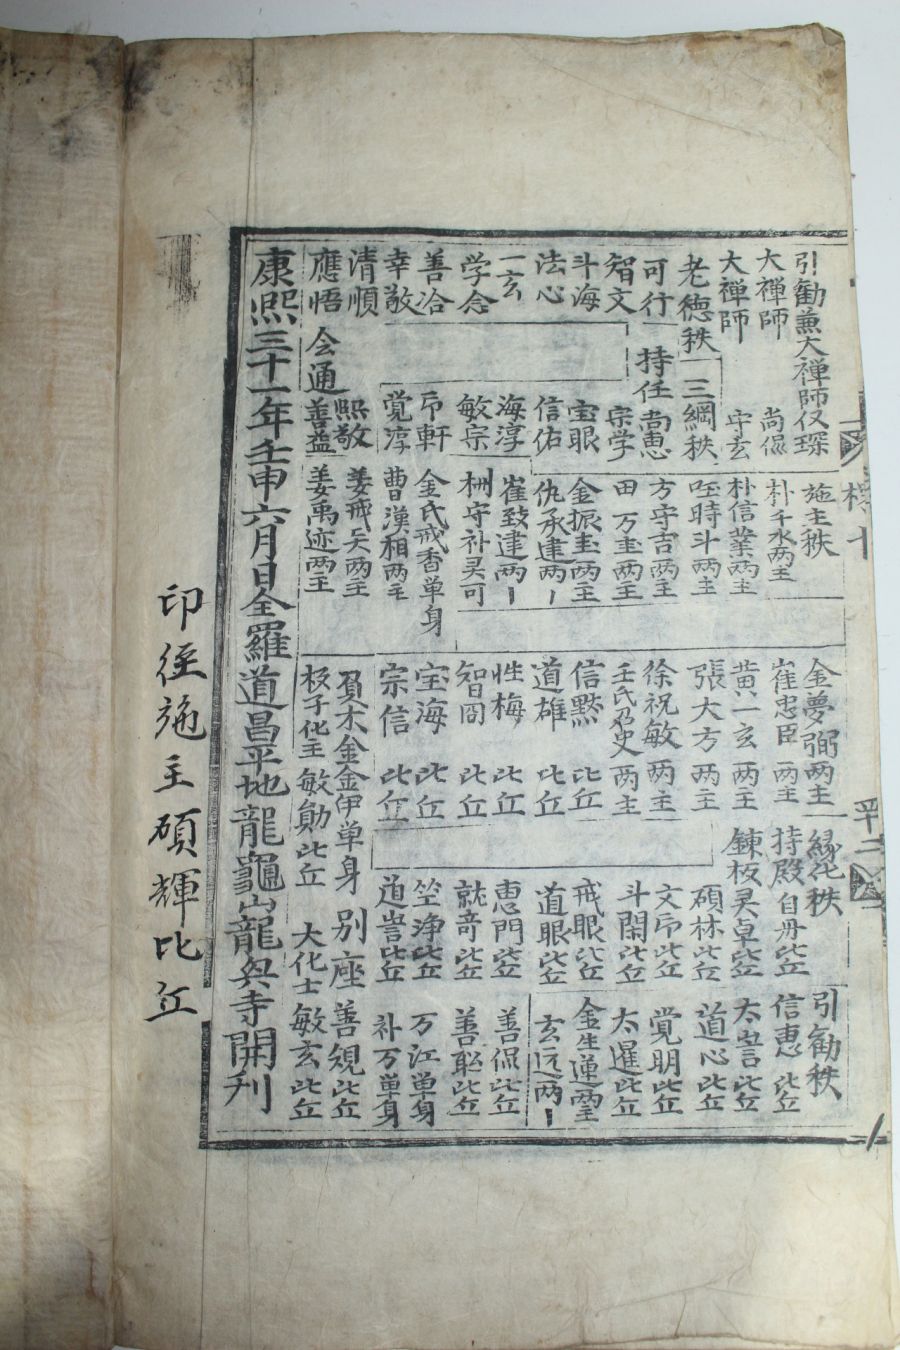 引勧兼大禅師仅琛
大禅師 尚侃
大禅師 守玄
老德秩 三綱秩
可行 持任 尚惠
智文 宗学
斗海 宝眼
法心 信佑
一玄 海淳
学念 敏宗
善洽 軒
幸敬 覚淳
清順 熙敬
應悟 会通 善益
施主秩
朴千水两主
朴信業两主
時斗两主
方守吉两主
田万 两主
金振 两主
仇承建两
崔致建两
守补灵可
金氏戒香单身
曹漢相两主
姜戒 两主
姜禹迹两主
金夢弼两主
崔忠臣 两主
黄一玄 两主
張大方 两主
徐祝敏 两主
壬氏 史 两主
信黙 比丘
道雄 比丘
性梅 比丘
智冏 比丘
宝海 比丘
宗信 比丘
負木金金伊单身
板子化主敏勛比丘
緣化秩
持殿 自丹比丘
鍊板灵卓比丘
碩林比丘
文 比丘
斗閑比丘
戒眼比丘
道眼比丘
惠門比丘
就奇比丘
竺浄比丘
道訔比丘
别座 善規比丘
大化士敏玄比丘
引勧秩
信惠 比丘
太訔比丘
道心比丘
覚明比丘
太暹比丘
金生蓮两主
玄远两
善侃比丘
善聡比丘
万江单身
补万单身
康熙三十一年壬申六月日全羅道昌平地龍龜山龍興寺開刋
印経施主碩輝比丘